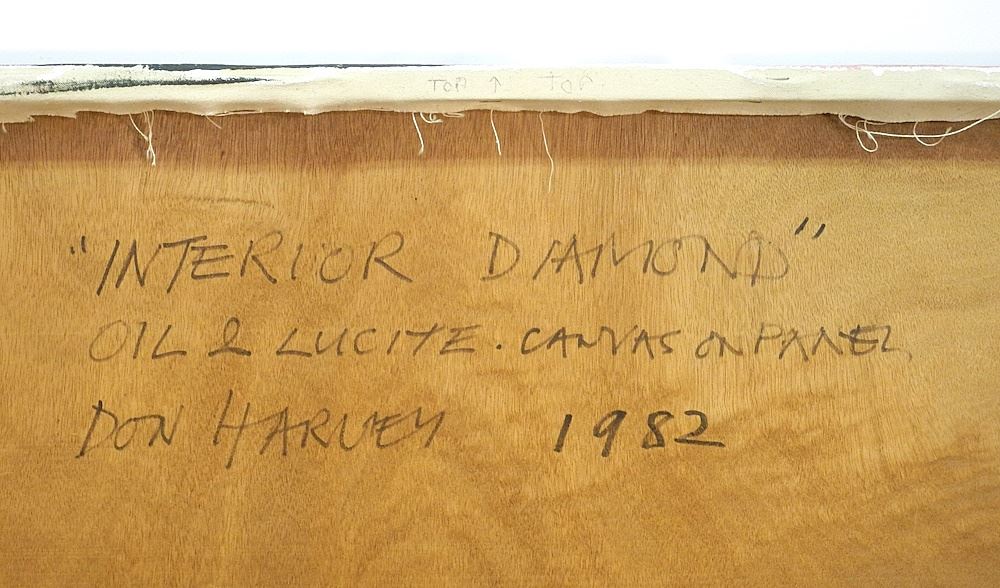 TOP ↑ TOP
"INTERIOR DIAMOND"
OIL & LUCITE. CANVAS ON PANEL
DON HARVEY 1982